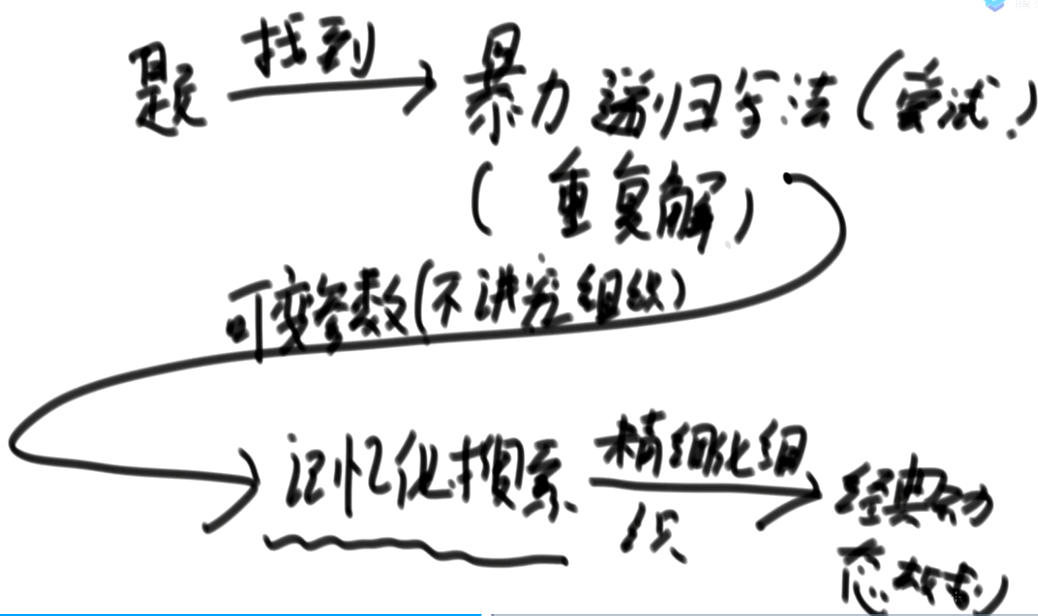 题 找到 暴力递归写法(尝试)
(重复解)
可变参数(不讲究组织)
记忆化搜索 精细化组
织 经典动
态规划